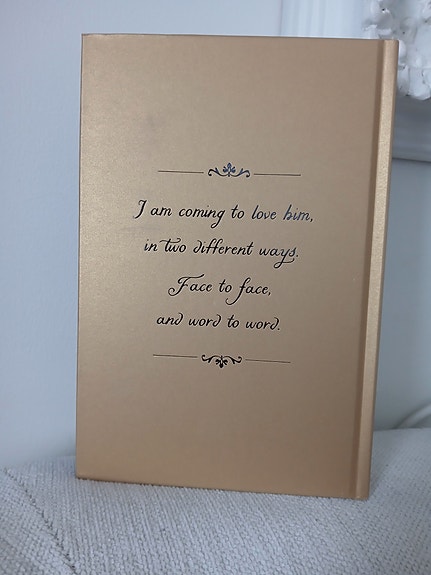 I am coming to love him,
in two different ways.
Face to face,
and word to word.